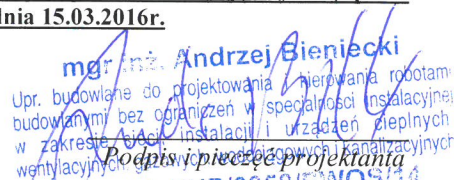 dnia 15.03.2016r.
mgr inż. Andrzej Bieniecki
Upr. budowlane do projektowania i kierowania robotami
budowlanymi bez ograniczeń w specjalności instalacyjnej
w zakresie sieci instalacji i urządzeń cieplnych
wentylacyjnych gazowych wodociągowych i kanalizacyjnych
Podpis i pieczęć projektanta